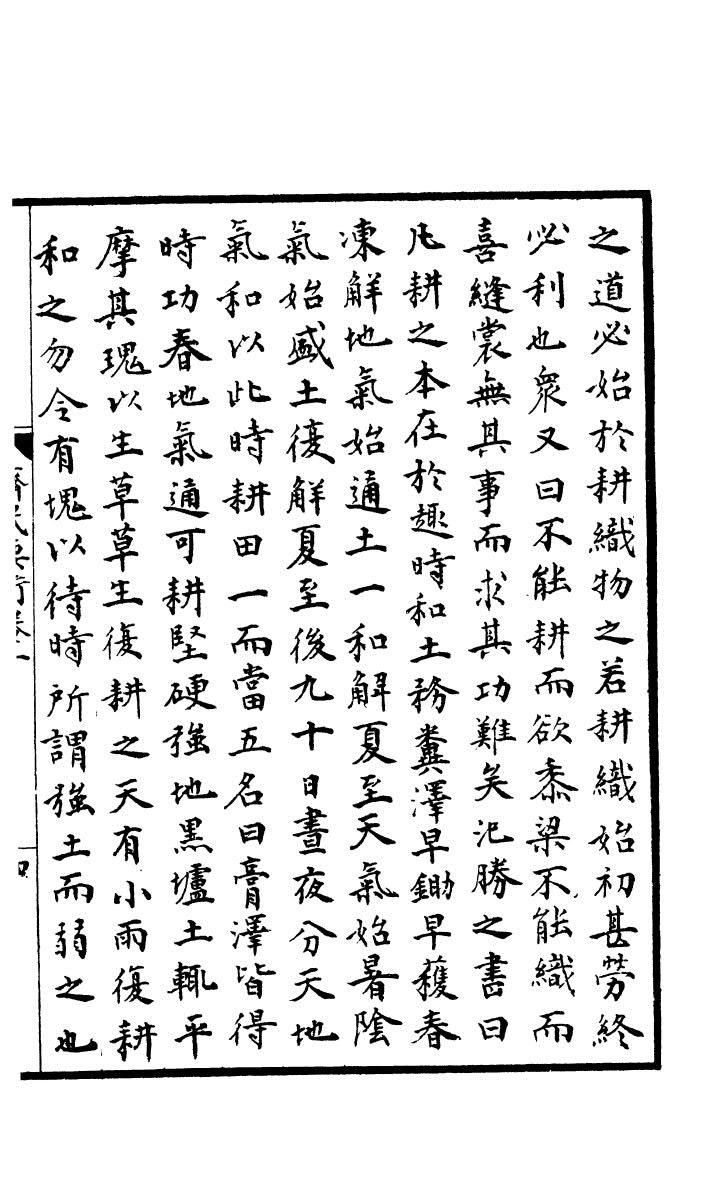 之道必始於耕織物之若耕織始初甚勞終
必利也衆又曰不能耕而欲黍梁不能織而
喜縫裳無其事而求其功難矣氾勝之書曰
凡耕之本在於趣時和土務糞澤早鋤早穫春
凍解地氣始通土一和解夏至天氣始暑陰
氣始盛土復解夏至後九十日晝夜分天地
氣和以此時耕田一而當五名曰膏澤皆得
時功春地氣通可耕堅硬強地黑壚土輒平
摩其塊以生草草生復耕之天有小雨復耕
和之勿令有塊以待時所謂強土而弱之也
齊民要術卷一
四